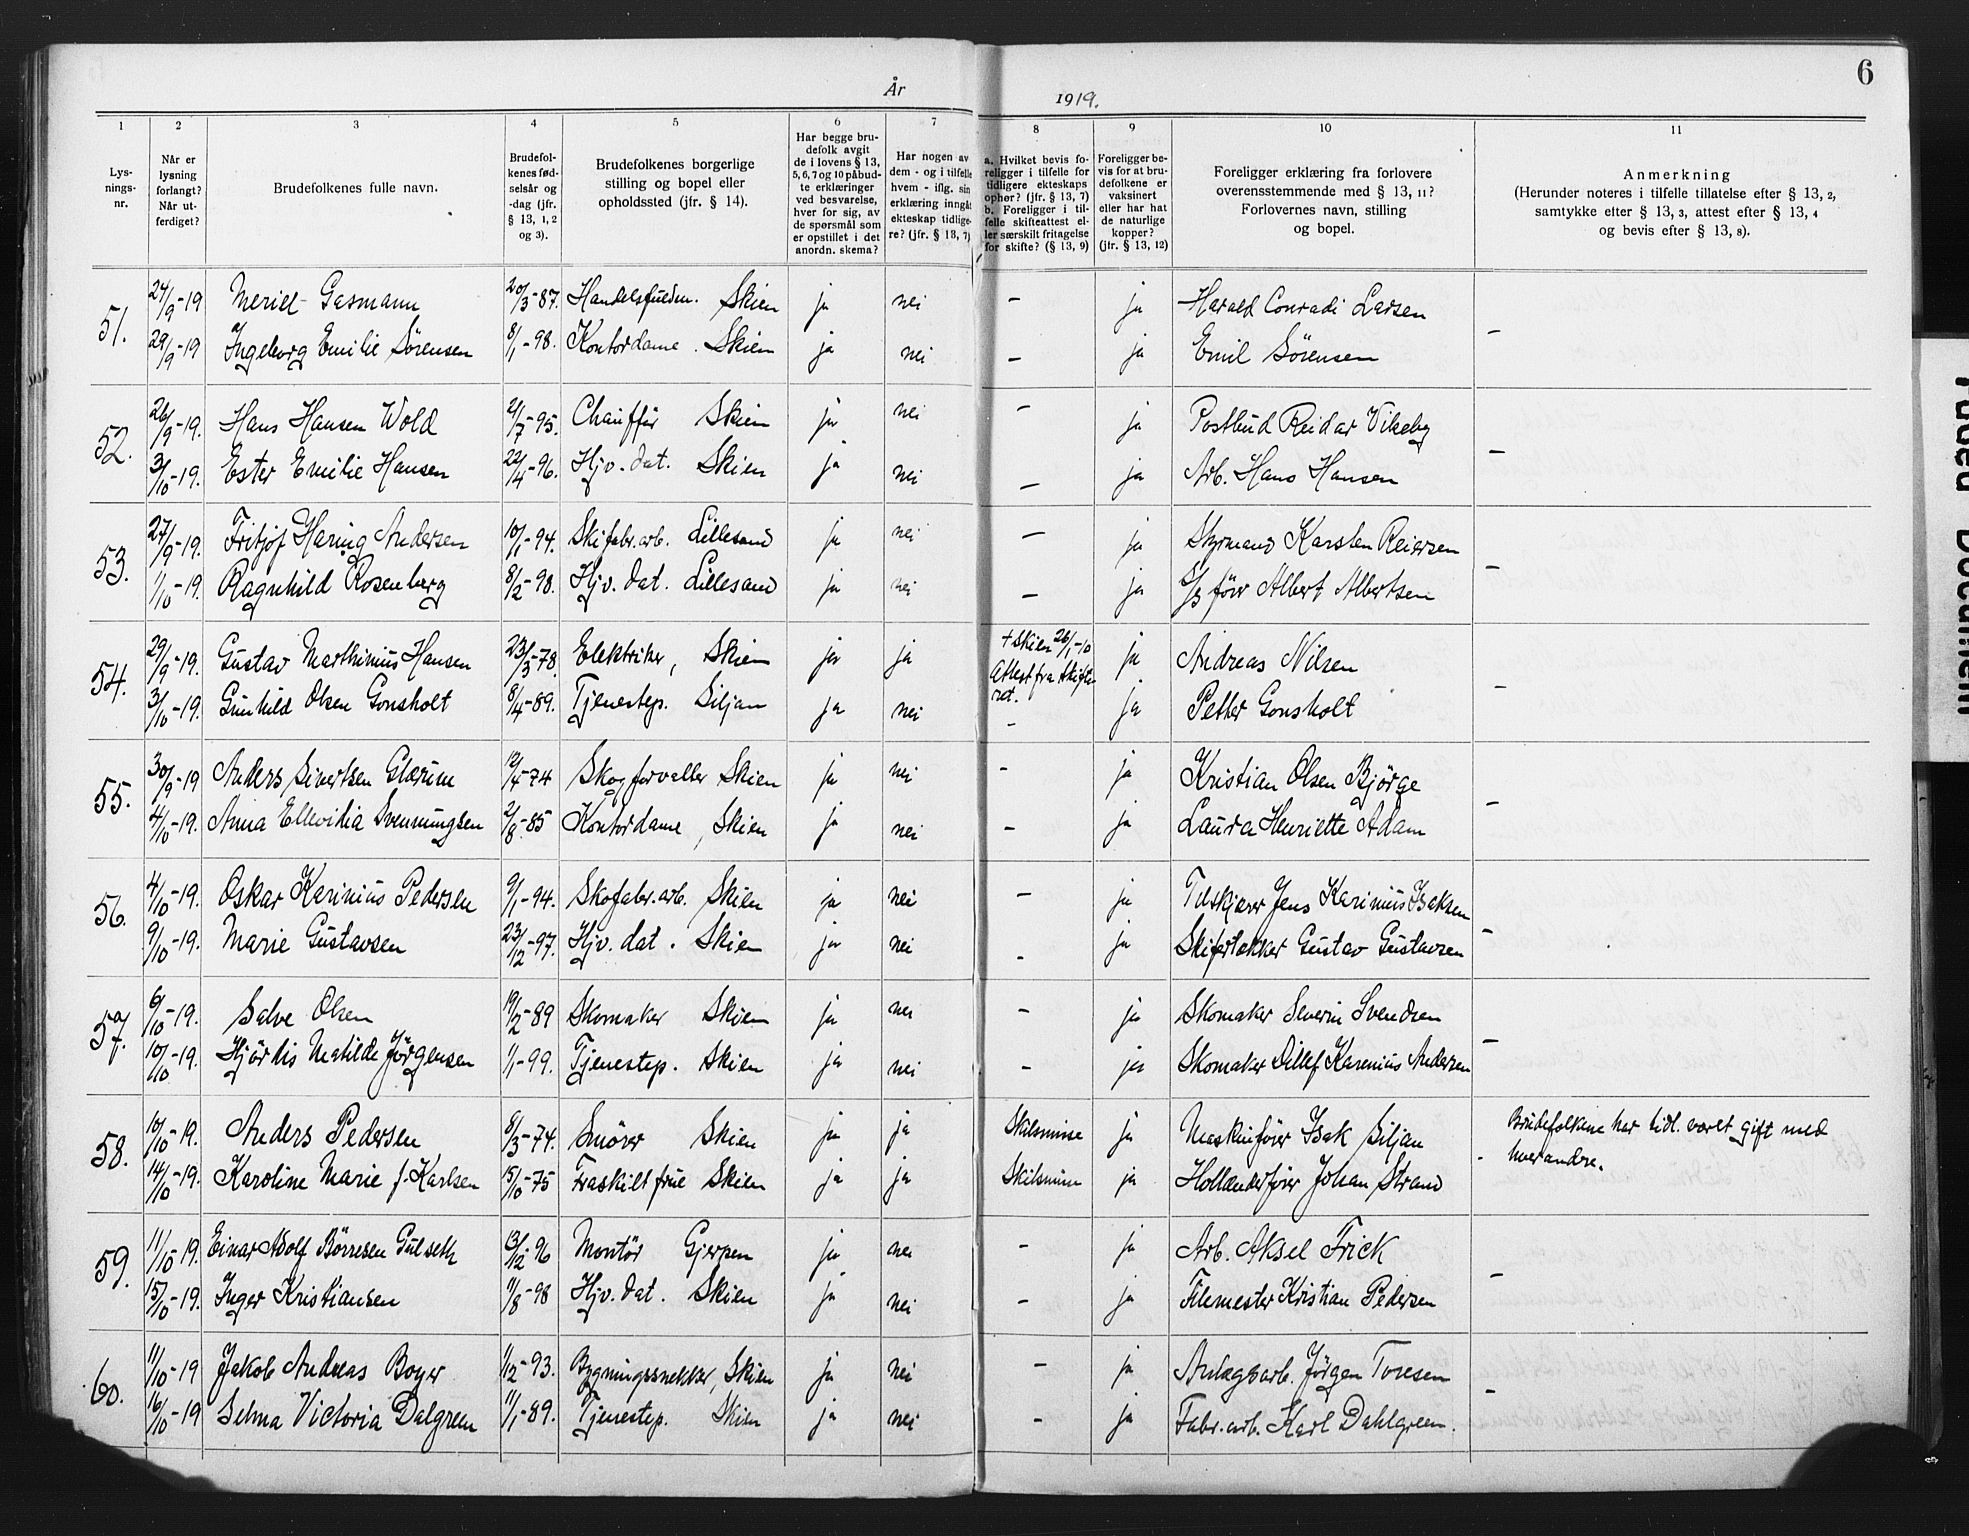 6
År 1919.
1 2 3 4 5 6 7 8 9 10 11
Lys-
nings-
nr.
Når er
lysning
forlangt?
Når ut-
ferdiget?
Brudefolkenes fulle navn.
Brudefol-
kenes fød-
selsår og
-dag (jfr.
§ 13, 1, 2
og 3).
Brudefolkenes borgerlige
stilling og bopel eller
opholdssted (jfr. § 14).
Har begge bru-
defolk avgit
de i lovens § 13,
5, 6, 7 og 10 påbud-
te erklæringer
ved besvarelse,
hver for sig, av
de spørsmål som
er opstillet i det
anordn. skema?
Har nogen av
dem - og i tilfelle
hvem - iflg. sin
erklæring inngåt
ekteskap tidlige-
re? (jfr. § 13, 7)
a. Hvilket bevis fo-
religger i tilfelle for
tidligere ekteskaps
ophør? (jfr. § 13, 7)
b. Foreligger i til-
felle skifteattest el-
ler særskilt fritagelse
for skifte? (§ 13, 9)
Foreligger be-
vis for at bru-
defolkene er
vaksinert
eller har hat
de naturlige
kopper?
(jfr. § 13, 12)
Foreligger erklæring fra forlovere
overensstemmende med § 13, 11?
Forlovernes navn, stilling
og bopel.
Anmerkning
(Herunder noteres i tilfelle tillatelse efter § 13, 2,
samtykke efter § 13, 3, attest efter § 13, 4
og bevis efter § 13, 8).
51. 24/9-19 Meriel Gasmann 20/3-87. Skien ja nei - ja Harald Conradi Larsen
29/9-19 Ingeborg Emilie Sörensen 8/1-98. Kontordame. Skien ja nei - ja Emil Sörensen -
52. 26/9-19. Hans Hansen Wold 2/7-95. Chaufför Skien ja nei - ja Postbud Reidar Vikeby
3/10-19. Ester Emilie Hansen 22/4-96. Hjv. dat. Skien ja nei - ja Arb. Hans Hansen -
53. 27/9-19. Fritjof Häring Andersen 10/1-94. Skifabr. arb. Lillesand ja nei - ja Styrmand Karsten Reiersen
1/10-19. Ragnhild Rosenberg 8/2-98. Hjv. dat. Lillesand ja nei - ja S/S förer Albert Albertsen -
54. 29/9-19. Gustav Marthinius Hansen 23/3-78. Elektriker, Skien ja ja + Skien 26/1-10 ja Andreas Nilsen
Attest fra skifte-
ret.
3/10-19. Gunhild Olsen Gonsholt 8/4-89. Tjenestep. Siljan ja nei - ja Petter Gonsholt -
55. 30/9-19 Anders Sivertsen Glærum 12/4-74 Skogforvalter Skien ja nei - ja Kristian Olsen Björge
4/10-19. Anna Ellevidia Svenningsen 2/8-85 Kontordame, Skien ja nei - ja Laura Henriette Adam -
56. 4/10-19. Oskar Karinius Pedersen 9/1-94. Skofabr. arb. Skien ja nei - ja Tilskjærer Jens Karinius Isaksen
9/10-19. Marie Gustavsen 23/12-97. Hjv. dat. Skien ja nei - ja Skifertekker Gustav Gustavsen -
57. 6/10-19. Salve Olsen 19/2-89 Skomaker Skien ja nei - ja Skomaker Severin Svendsen
10/10-19. Hjördis Matilde Jörgensen 1/1-99. Tjenestep. Skien ja nei - ja Skomaker Ditlef Karenius Andersen -
58. 10/10-19. Anders Pedersen 8/3-74. Smörer Skien ja ja Skilsmisse ja Maskinförer Isak Siljan Brudefolkene har tidl. været gift med
14/10-19. Karoline Marie f. Karlsen 15/10-75 Fraskilt frue Skien ja ja Skilsmisse ja Hollænderförer Johan Strand - hverandre.
59. 11/10-19. Einar Adolf Börresen Gulseth 13/12-96 Montör Gjerpen ja nei - ja Arb. Aksel Frick
15/10-19. Inger Kristiansen 11/8-98 Hjv. dat. Skien ja nei - ja Filemester Kristian Pedersen -
60. 11/10-19 Jakob Andreas Boyer 1/12-93. Bygningssnekker, Skien ja nei - ja Anlægsarb. Jörgen Toresen
16/10-19 Selma Victoria Dalgren 11/1-89. Tjenestep. Skien ja nei - ja Fabr. arb. Karl Dahlgreen. -